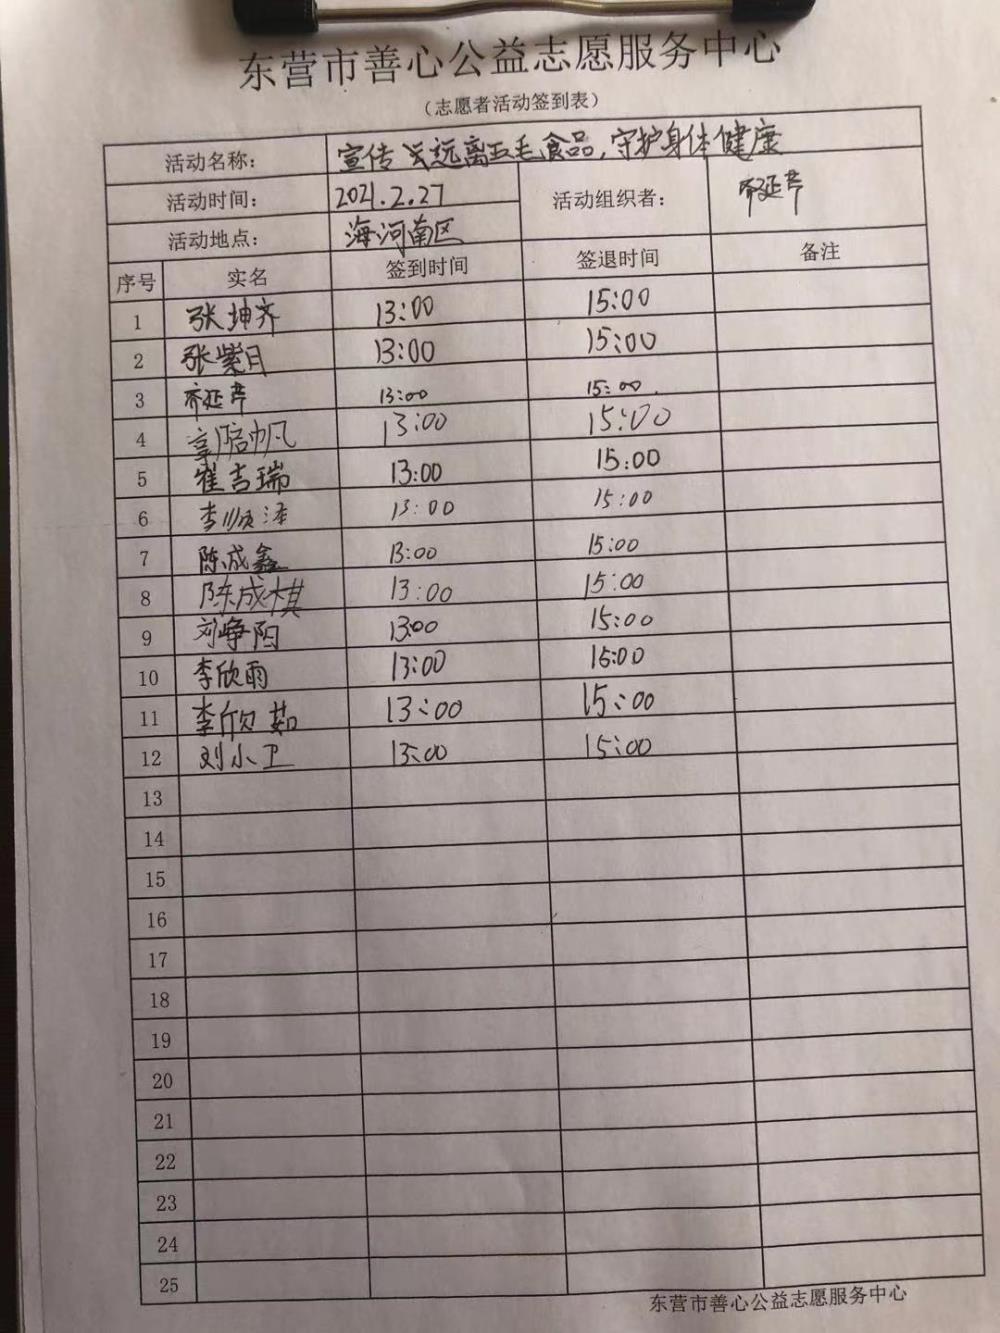 东营市善心公益志愿服务中心
（志愿者活动签到表）
活动名称： 宣传 远离五毛食品，守护身体健康
活动时间： 2021.2.27 活动组织者： 乔延芹
活动地点： 海河南区
序号 实名 签到时间 签退时间 备注
1 张坤齐 13:00 15:00
2 张紫月 13:00 15:00
3 乔延芹 13:00 15:00
4 13:00 15:00
5 崔吉瑞 13:00 15:00
6 李顺泽 13:00 15:00
7 陈成鑫 13:00 15:00
8 陈成棋 13:00 15:00
9 刘峥阳 13:00 15:00
10 李欣雨 13:00 15:00
11 李欣茹 13:00 15:00
12 刘小卫 13:00 15:00
13
14
15
16
17
18
19
20
21
22
23
24
25
东营市善心公益志愿服务中心